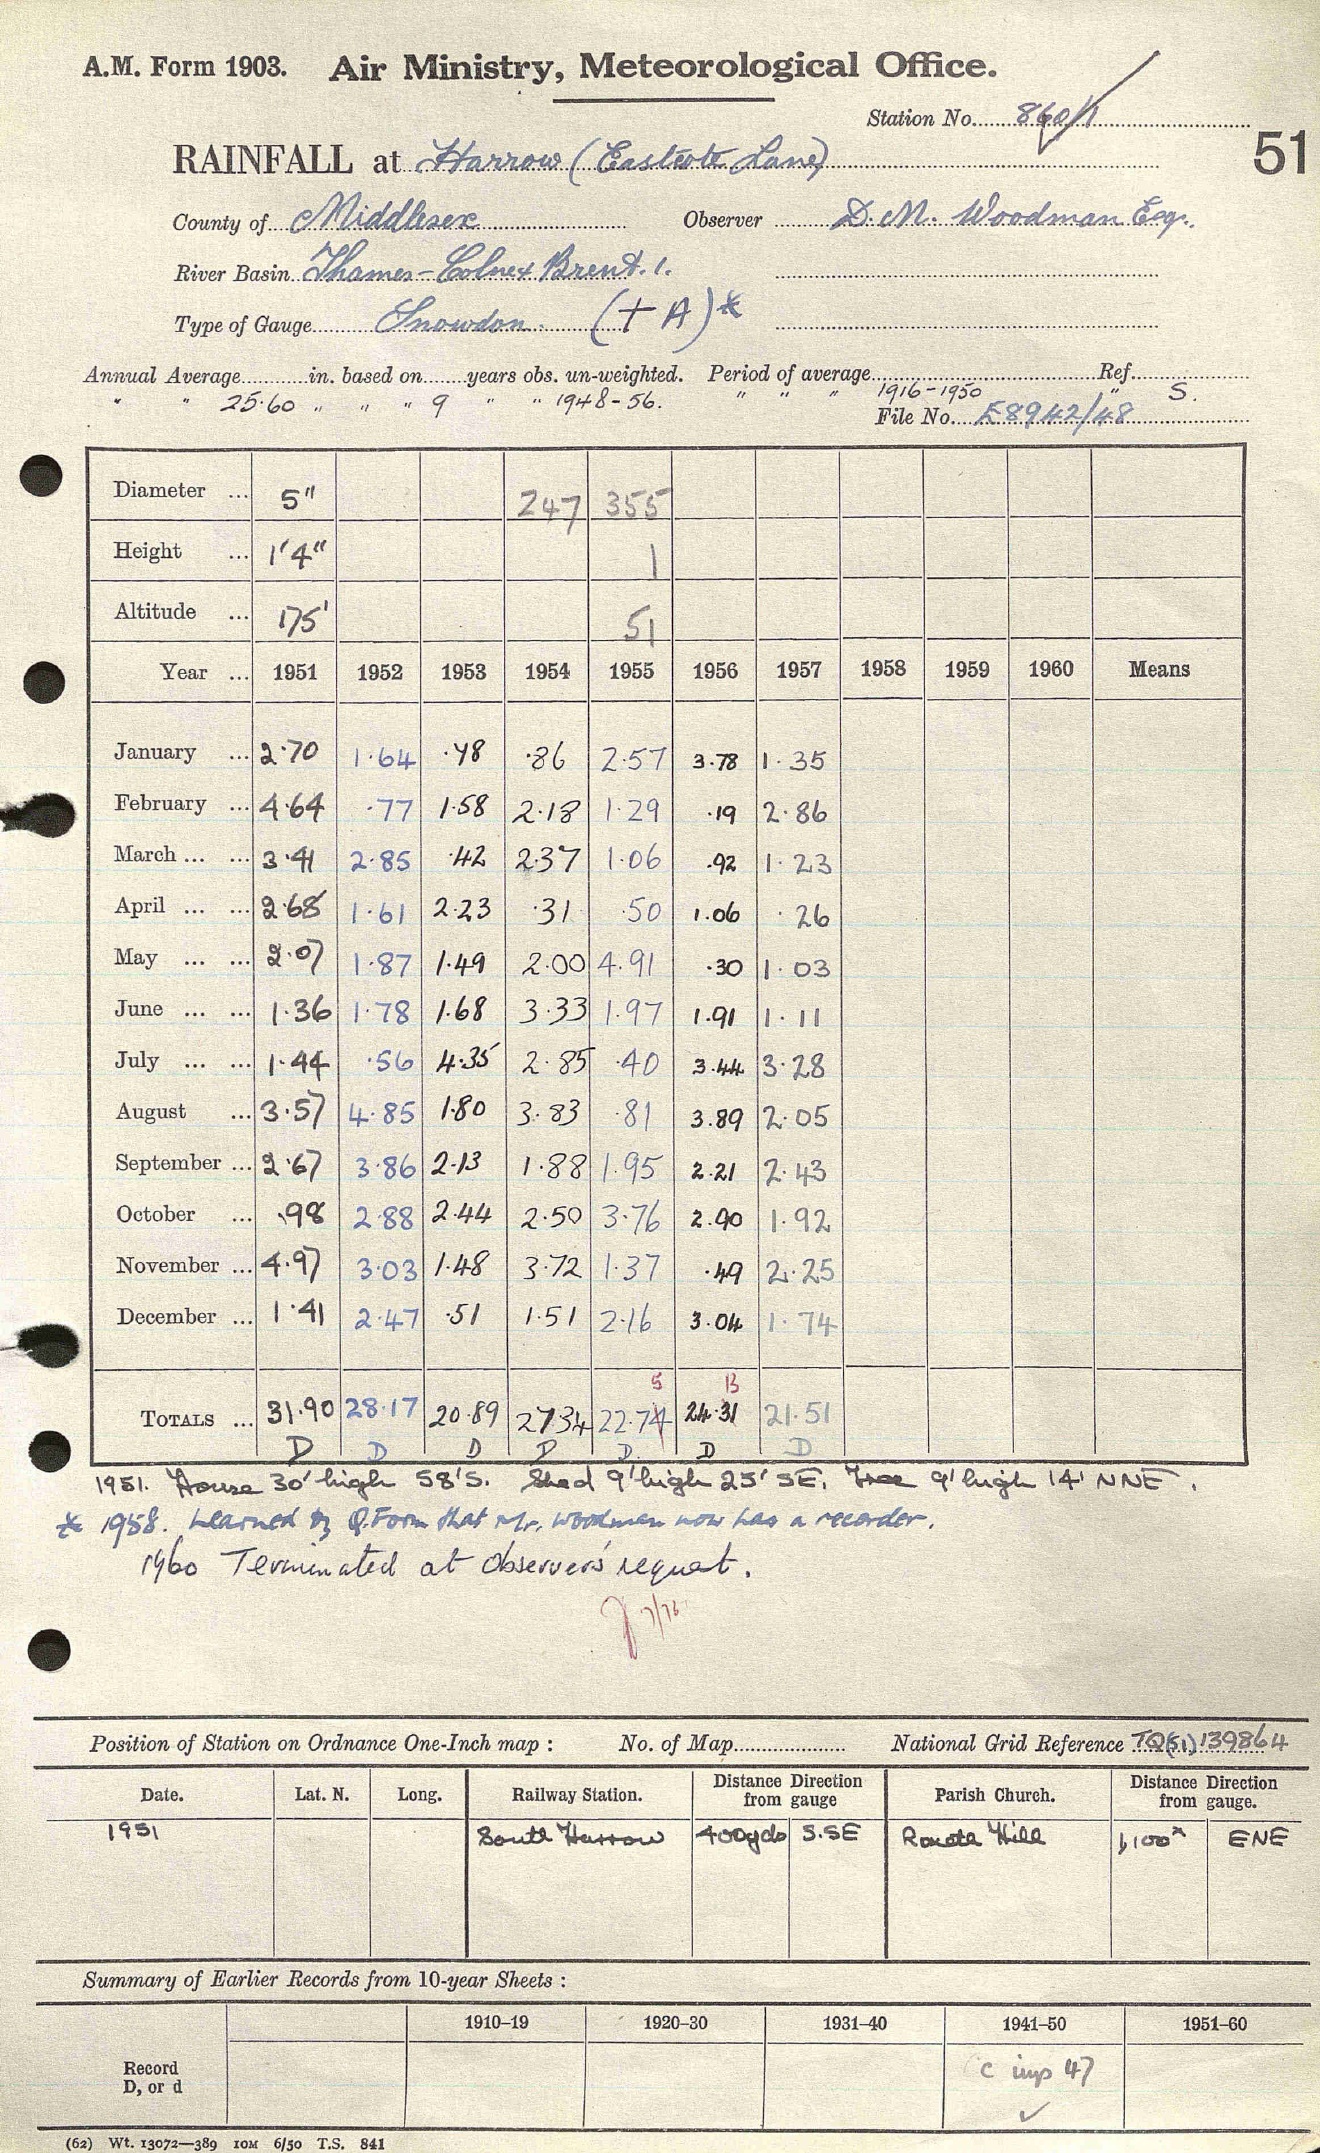 A.M. Form 1903. Air Ministry, Meteorological Office.
Station No. 860/1
51
RAINFALL at Harrow (Eastcote Lane)
County of Middlesex Observer D. M. Woodman Esq.
River Basin Thames - Colne & Brent. 1.
Type of Gauge Snowdon. (+ A)*
Annual Average in. based on years obs. un-weighted. Period of average Ref.
" " 25.60 " " " 9 " " 1948-56. " " " 1916-1950 " S.
File No. E8942/48
Diameter ... 5" 247 355
Height ... 1'4" 1
Altitude ... 175' 51
Year ... 1951 1952 1953 1954 1955 1956 1957 1958 1959 1960 Means
January ... 2.70 1.64 .48 .86 2.57 3.78 1.35
February ... 4.64 .77 1.58 2.18 1.29 .19 2.86
March ... ... 3.41 2.85 .42 2.37 1.06 .92 1.23
April ... ... 2.68 1.61 2.23 .31 .50 1.06 .26
May ... ... 2.07 1.87 1.49 2.00 4.91 .30 1.03
June ... ... 1.36 1.78 1.68 3.33 1.97 1.91 1.11
July ... ... 1.44 .56 4.35 2.85 .40 3.44 3.28
August ... 3.57 4.85 1.80 3.83 .81 3.89 2.05
September ... 2.67 3.86 2.13 1.88 1.95 2.21 2.43
October ... .98 2.88 2.44 2.50 3.76 2.90 1.92
November ... 4.97 3.03 1.48 3.72 1.37 .49 2.25
December ... 1.41 2.47 .51 1.51 2.16 3.04 1.74
5 13
TOTALS ... 31.90 28.17 20.89 27.34 22.74 24.31 21.51
D D D D D D D
1951. House 30' high 58' S. Shed 9' high 25' SE. Tree 9' high 14' NNE.
* 1958. Learned by Q.Form that Mr. Woodman now has a recorder.
1960 Terminated at observer's request.
7/76
Position of Station on Ordnance One-Inch map : No. of Map National Grid Reference TQ(51)139864
Date. Lat. N. Long. Railway Station. Distance Direction from gauge Parish Church. Distance Direction from gauge.
1951 South Harrow 400yds S.SE Roxeth Hill 1,100x ENE
Summary of Earlier Records from 10-year Sheets :
1910–19 1920–30 1931–40 1941–50 1951–60
Record
D, or d
c imp 47
(62) Wt. 13072—389 10M 6/50 T.S. 841